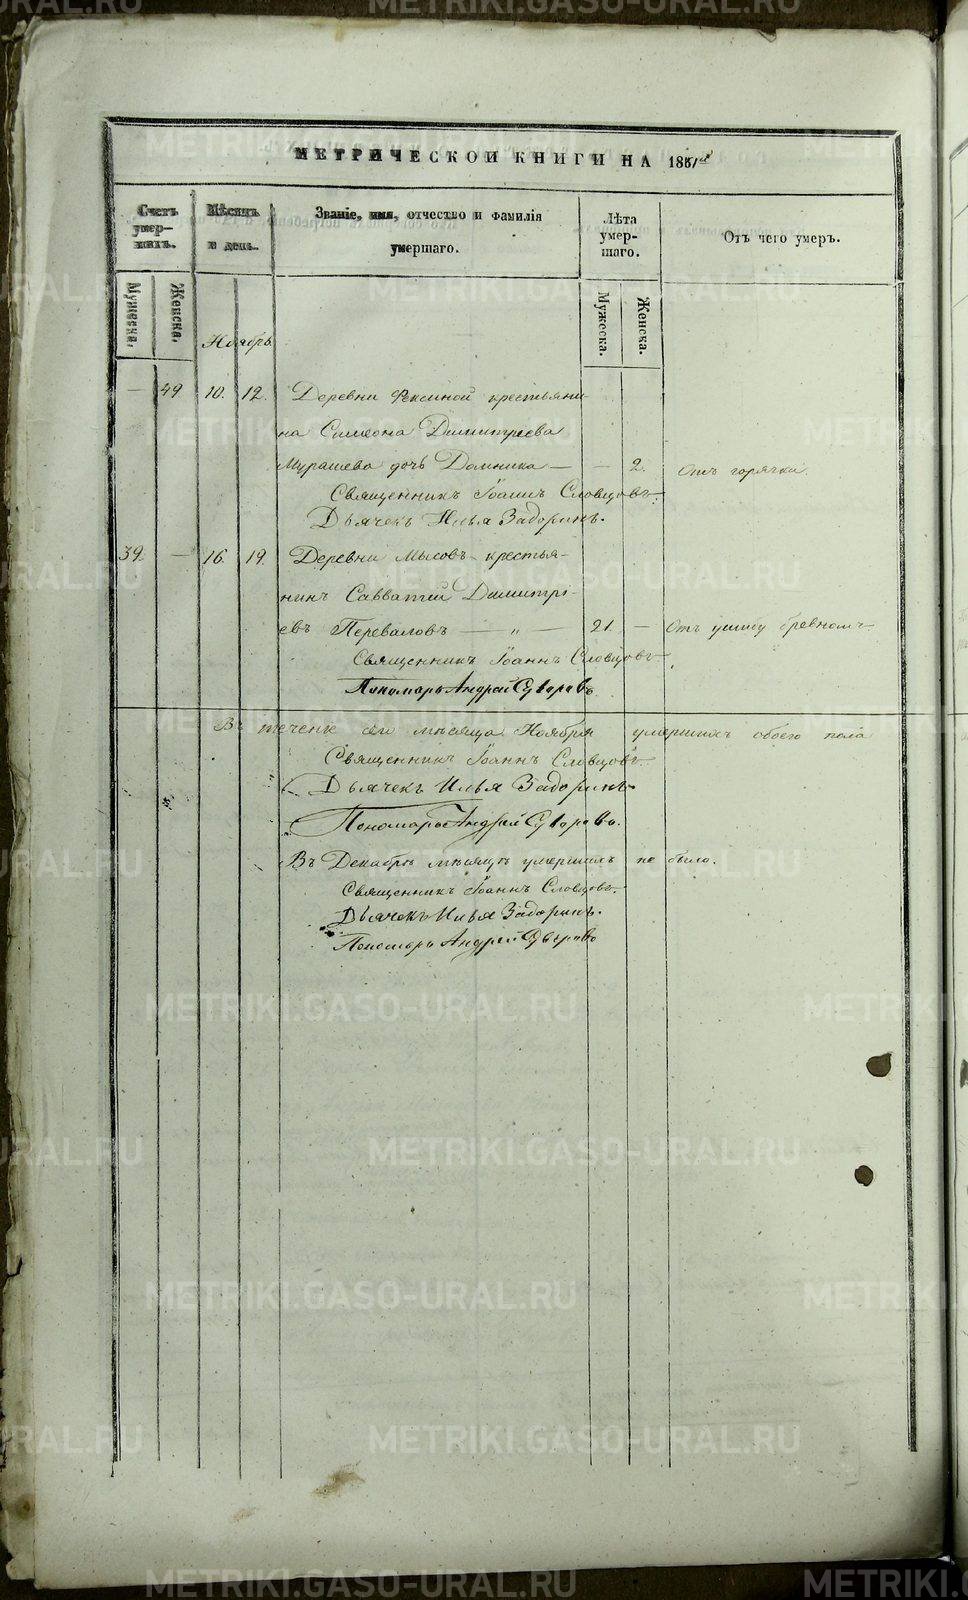 МЕТРИЧЕСКОЙ КНИГИ НА 1851й
Счетъ умер-шихъ.
Мѣсяцъ и день.
Званіе, имя, отчество и фамилія умершаго.
Лѣта умер-шаго.
Отъ чего умеръ.
Мужеска.
Женска.
Мужеска.
Женска.
Ноябрь
— 49 10. 12. Деревни Фексиной крестьяни-
на Симеона Димитріева
Мурашева дочь Домника — — 2. Отъ горячки.
Священникъ Іоаннъ Словцовъ.
Дьячекъ Илья Задоринъ.
39. — 16. 19. Деревни Мысовъ крестья-
нинъ Савватій Димитрі-
евъ Переваловъ — „ — 21. — Отъ ушибу бревномъ
Священникъ Іоаннъ Словцовъ.
Пономарь Андрей Суворовъ
Въ теченіе сего мѣсяца Ноября умершихъ обоего пола
Священникъ Іоаннъ Словцовъ.
Дьячекъ Илья Задоринъ
Пономарь Андрей Суворовъ.
Въ Декабрѣ мѣсяцѣ умершихъ не было.
Священникъ Іоаннъ Словцовъ.
Дьячекъ Илья Задоринъ.
Пономарь Андрей Суворовъ
METRIKI.GASO-URAL.RU